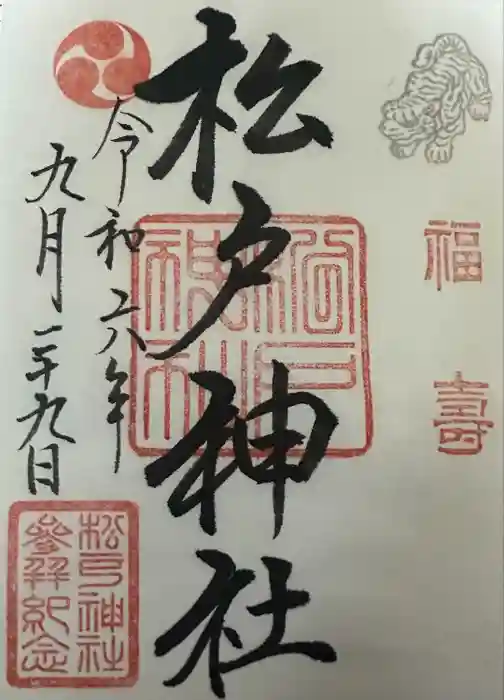 福壽
松戸神社
松戸神社
令和六年
九月二十九日
松戸神社
参拜紀念